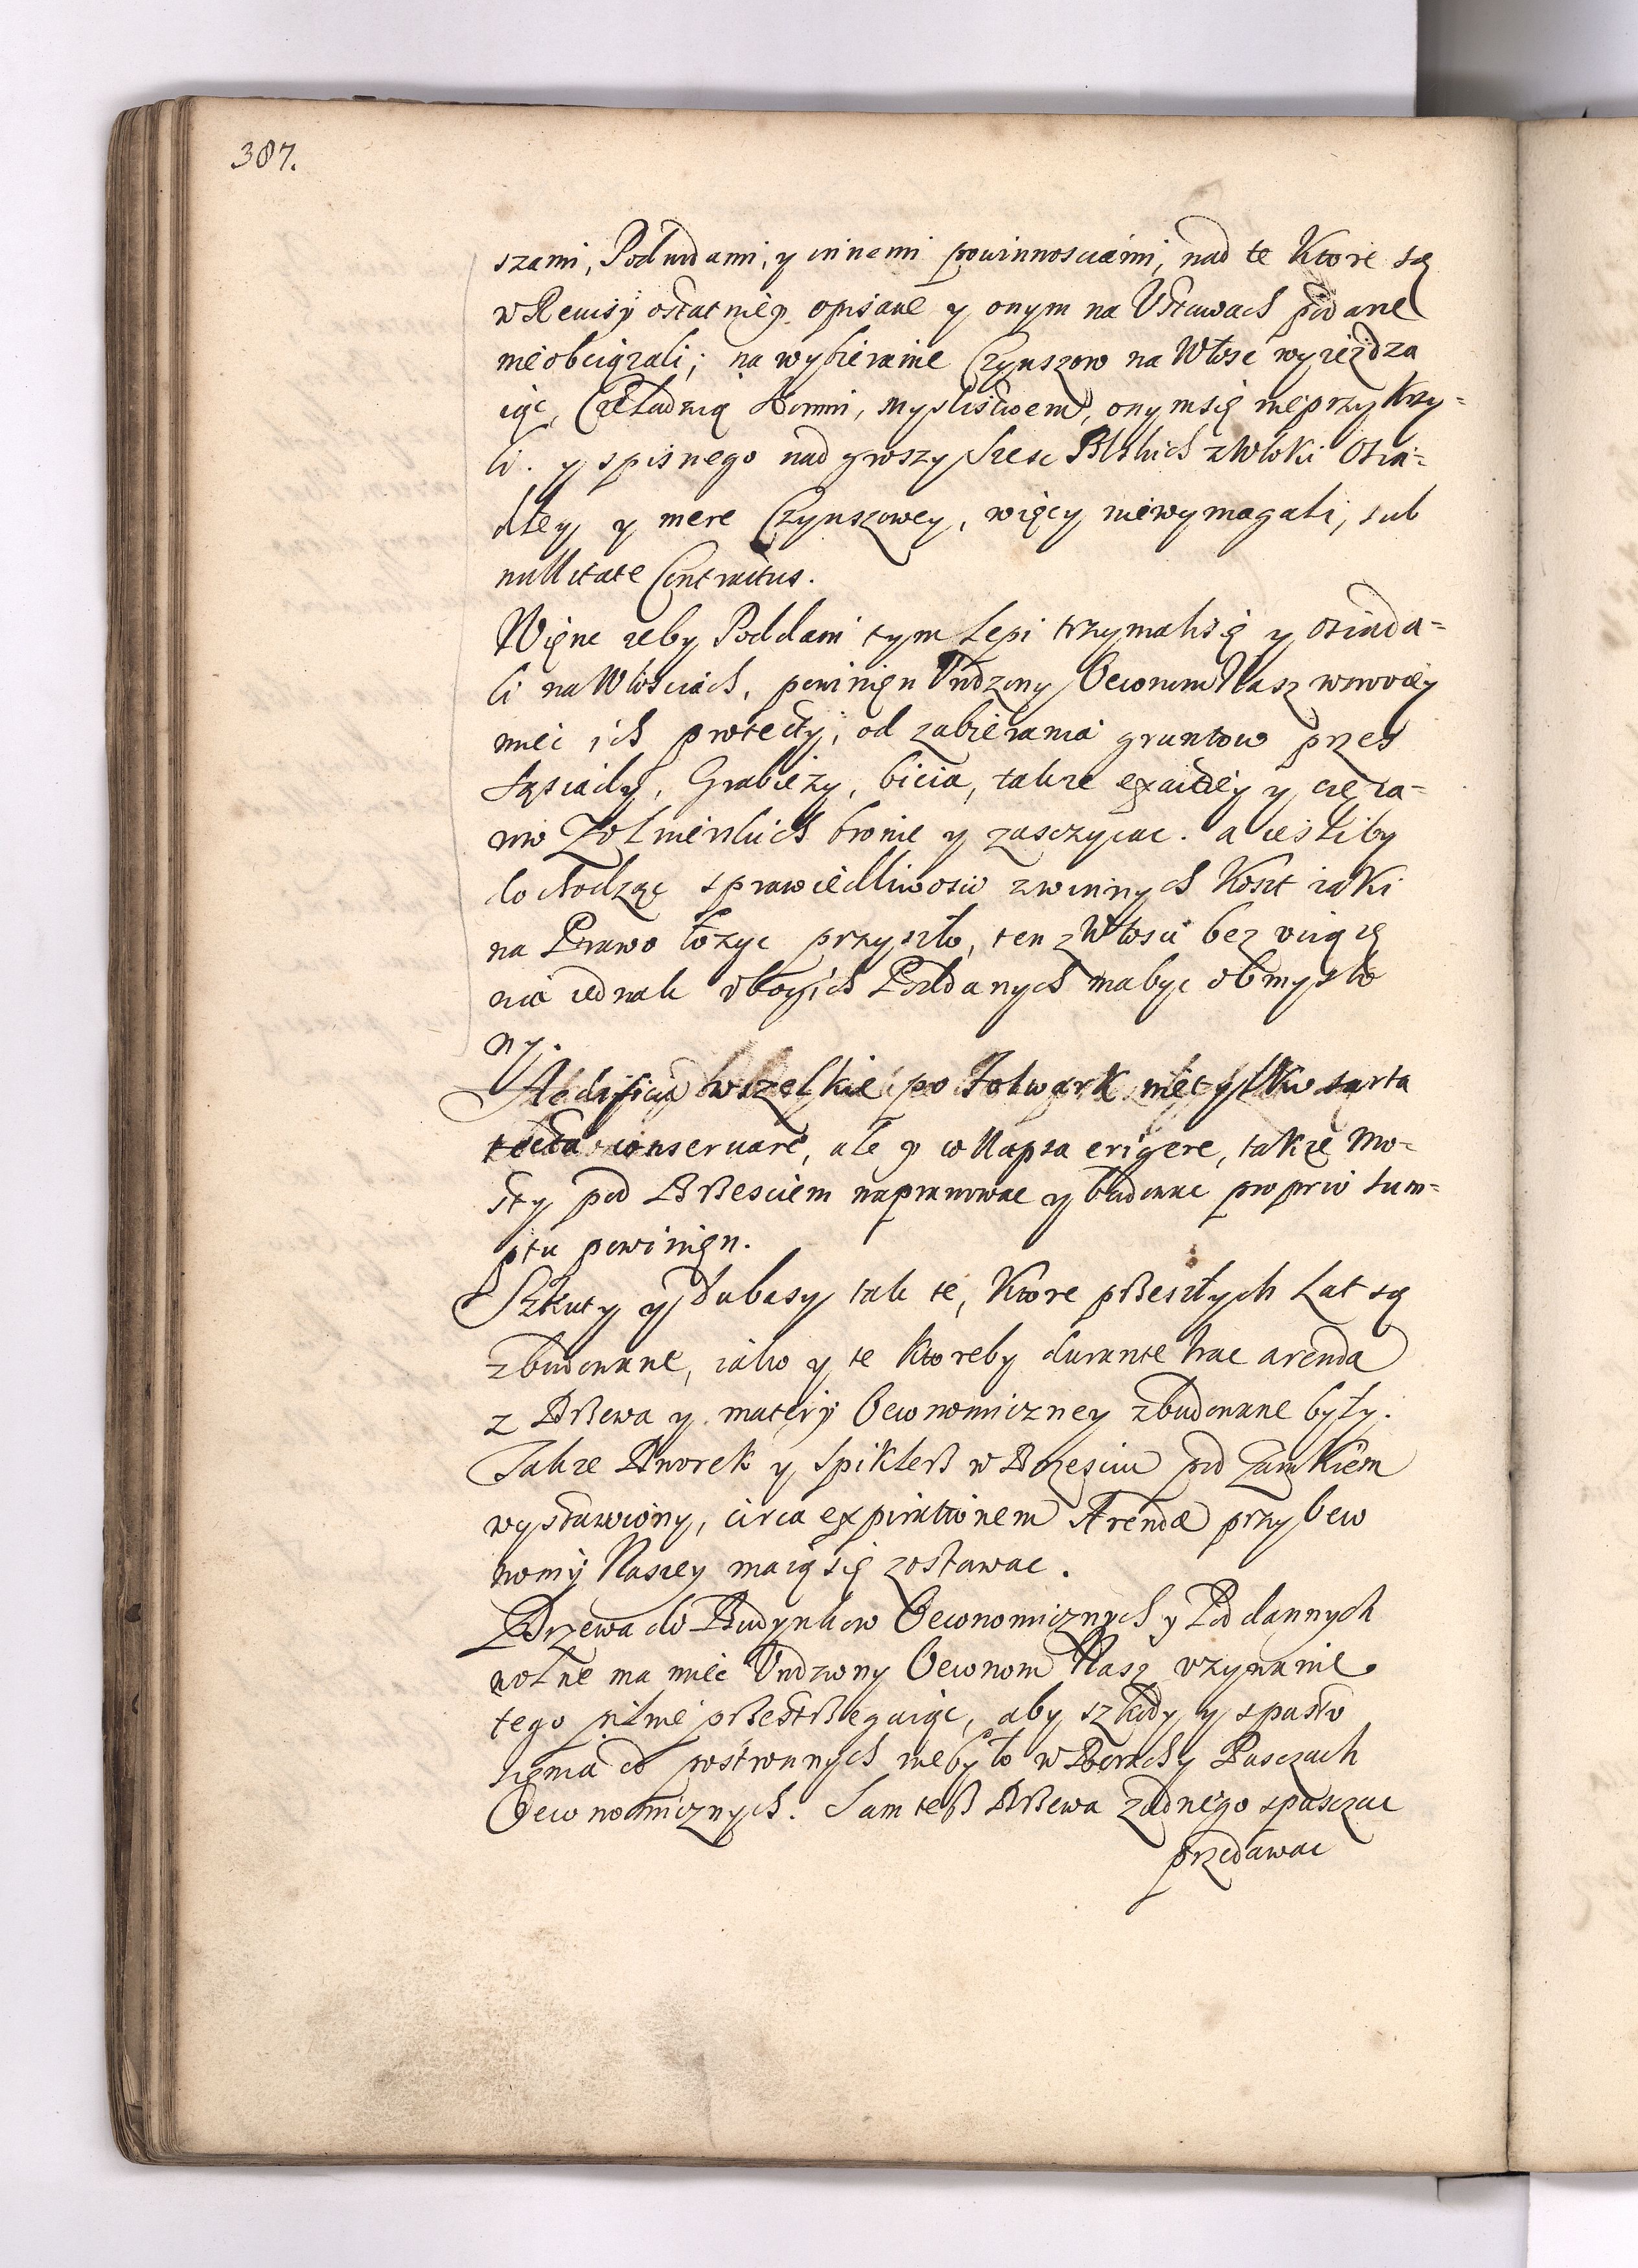 387.
szami, Podwodami, y innemi powinnosciami, nad te Ktore są
w Rewisÿ ostatniey opisane y onym na Ustawach podane
nieobciązali; na wybieranie Czynszow na Włosć wyiezdza
iąc, Czeladzią Konmi, myslistwem, onym się nieprzykrzy-
li. y spisnego nad groszy szesc Polskich z Włoki Osia-
dłey y mere Czynszowey, więcy niewymagali, sub
nullitate Contractus.
Więne zeby Poddani tym Lepi trzymali się y osiada-
li na Włosciach, powinięn Urodzony Oeconom Nasz w swoiey
miec ich protectÿ, od zabierania gruntow przes
Sąsiady, Grabiezy, bicia, takze exactiey y cięza-
row Zołnierskich bronic y zasczycac. a iesliby
dochodząc sprawiedliwosci z winnych Koszt iaki
na Prawo łozyc przyszło, ten z Włosci bez uciąze
nia iednak ubogich Poddanych ma byc obmyslo
ny.
Aedificia wszelkie po Folwark nietylko sarta
tecta conservare, ale y collapsa erigere, takze Mo-
sty pod Brzesciem naprawowac y budowac proprio sum-
ptu powinięn.
Szkuty y dubasy tak te, Ktore przeszłych Lat są
zbudowane, iako y te Ktoreby durante hac arenda
z Drzewa y materÿ Oeconomiczney zbudowane były.
Takze Dworek y Spiklerz w Brzesciu pod Zamkiem
wystawiony, circa expirationem Arendae przy Oeco
nomÿ Naszey maią się zostawac.
Drzewa do Budynkow Oeconomicznych y Poddannych
wolne ma miec Urodzony Oeconom Nasz uzywanie
tego pilnie przestrzegaiąc, aby szkody y spusto
szęnia od postronnych niebyło w Borach y Pusczach
Oeconomicznych. Sam tesz Drzewa zadnego spusczac
przedawac